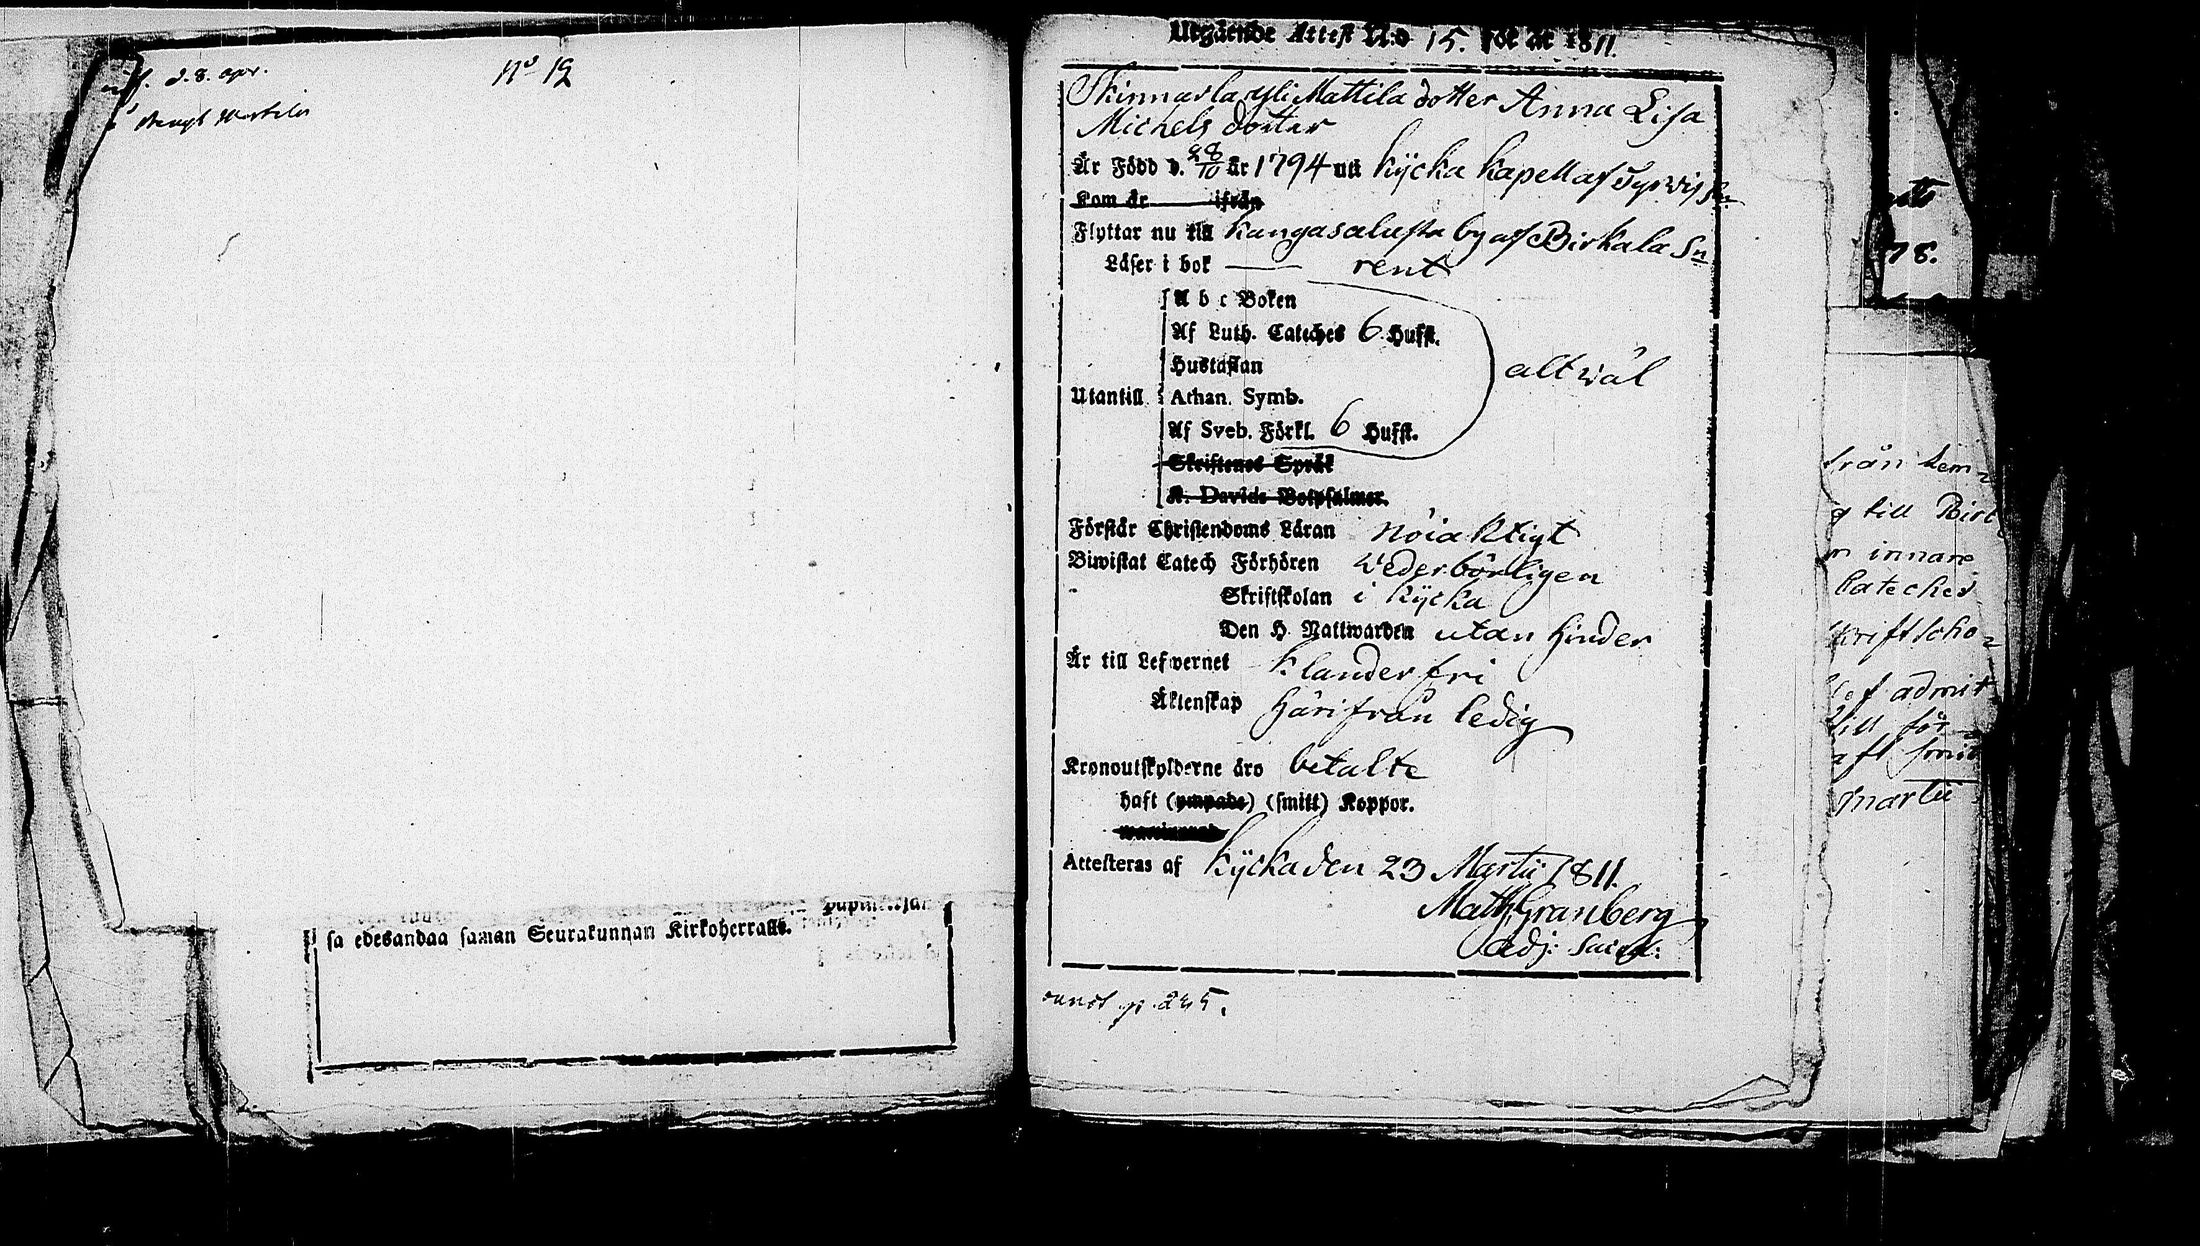 d. 8. apr.
No 12
Utgående Attest N:o 15. för år 1811.
Skinnarla yli Mattila dotter Anna Lisa
Michels dotter
Är Född d. 28/10 år 1794 uti Kÿcka Kapell af Tyrwis Sn
Kom år ifrån
Flyttar nu till Kangasalusta by af Birkala Sn
Läser i bok — rent
A b c Boken
Af Luth. Cateches 6 Hufst.
Hustaflan
altwäl
Utantill Athan. Symb.
Af Sveb. Förkl. 6 Hufst.
Skriftenes Språk
K. Davids Botpsalmer.
Förstår Christendoms Läran nöiaktigt
Biwistat Catech Förhören wederbörligen
Skriftskolan i Kÿcka
Den H. Nattwarden utan hinder
Är till Lefwernet klanderfri
Äktenskap härifrån ledig
Kronoutskylderne äro betalte
haft (ympade) (smitt) Koppor.
Attesteras af Kÿcka den 23 Martii 1811.
Math Granberg
adj: Sacell:
p. 245.
sa edesandaa saman Seurakunnan Kirkoherralle.
78.
från Lem=
till Birk
innan
Cateches
skriftscho=
admit
till för
haft smit
martii